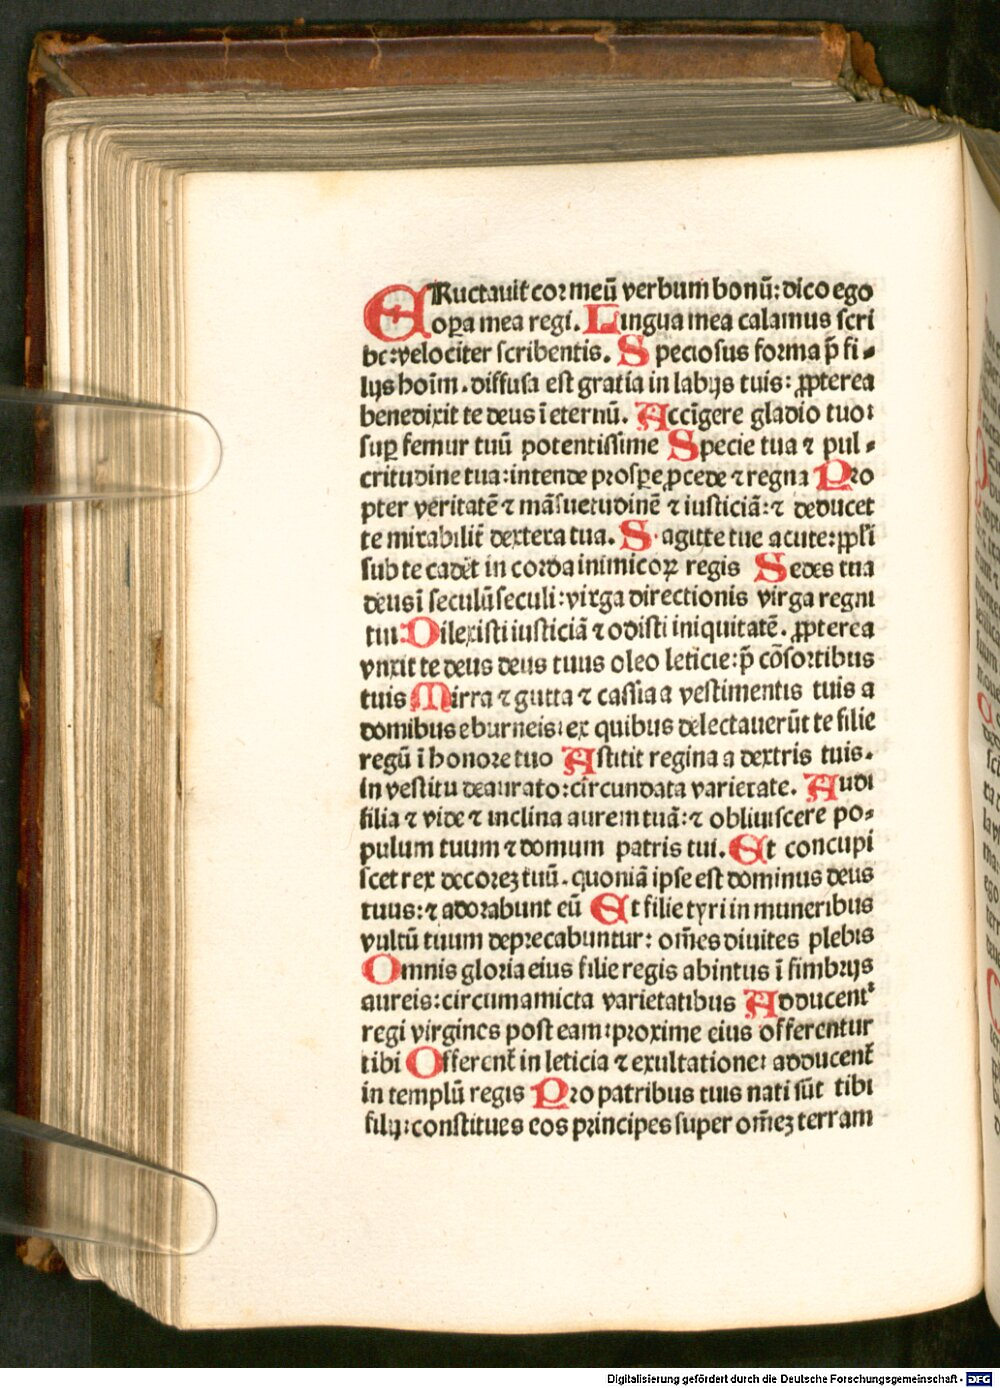 ERuctauit cor meū verbum bonū: dico ego
oꝑa mea regi. Lingua mea calamus scri
be: velociter scribentis. Speciosus forma p̄ fi⸗
lijs hoīm. diffusa est gratia in labijs tuis: ꝓpterea
benedixit te deus ī eternū. Accīgere gladio tuo:
suꝑ femur tuū potentissime Specie tua ⁊ pul⸗
critudine tua: intende prosꝑe ꝓcede ⁊ regna Pro
pter veritatē ⁊ māsuetudinē ⁊ iusticiā: ⁊ deducet
te mirabilit̄ dextera tua. Sagitte tue acute: ppl̄i
sub te cadēt in corda inimicoꝝ regis Sedes tua
deus ī seculū seculi: virga directionis virga regni
tui: Dilexisti iusticiā ⁊ odisti iniquitatē. ꝓpterea
vnxit te deus deus tuus oleo leticie: p̄ cōsortibus
tuis Mirra ⁊ gutta ⁊ cassia a vestimentis tuis a
domibus eburneis: ex quibus delectauerūt te filie
regū ī honore tuo Astitit regina a dextris tuis.
in vestitu deaurato: circundata varietate. Audi
filia ⁊ vide ⁊ inclina aurem tuā: ⁊ obliuiscere po⸗
pulum tuum ⁊ domum patris tui. Et concupi
scet rex decoreꝫ tuū. quoniā ipse est dominus deus
tuus: ⁊ adorabunt eū Et filie tyri in muneribus
vultū tuum deprecabuntur: om̄es diuites plebis
Omnis gloria eius filie regis abintus ī fimbrijs
aureis: circumamicta varietatibus Adducent᷑
regi virgines post eam: proxime eius offerentur
tibi Offerent̄ in leticia ⁊ exultatione: adducent̄
in templū regis Pro patribus tuis nati sūt tibi
filij: constitues eos principes super om̄eꝫ terram
Digitalisierung gefördert durch die Deutsche Forschungsgemeinschaft - DFG